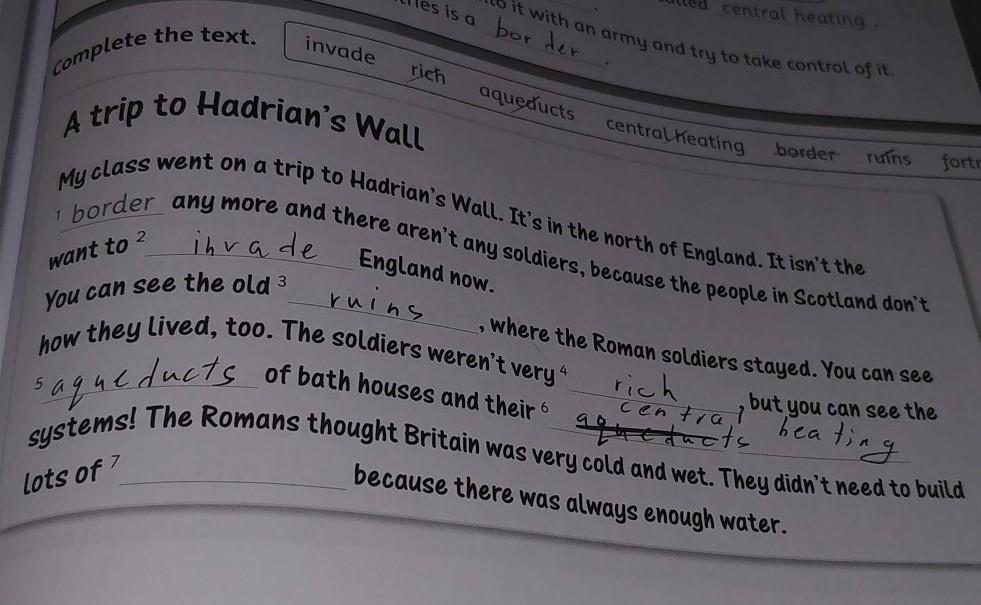 central heating.
is a border.
to it with an army and try to take control of it.
complete the text.
invade rich aqueducts central heating border ruins
A trip to Hadrian's Wall
My class went on a trip to Hadrian's Wall. It's in the north of England. It isn't the
1 border any more and there aren't any soldiers, because the people in Scotland don't
want to 2 invade England now.
You can see the old 3 ruins, where the Roman soldiers stayed. You can see
how they lived, too. The soldiers weren't very 4 rich, but you can see the
5 aqueducts of bath houses and their 6 aqueducts central heating
systems! The Romans thought Britain was very cold and wet. They didn't need to build
lots of 7 because there was always enough water.